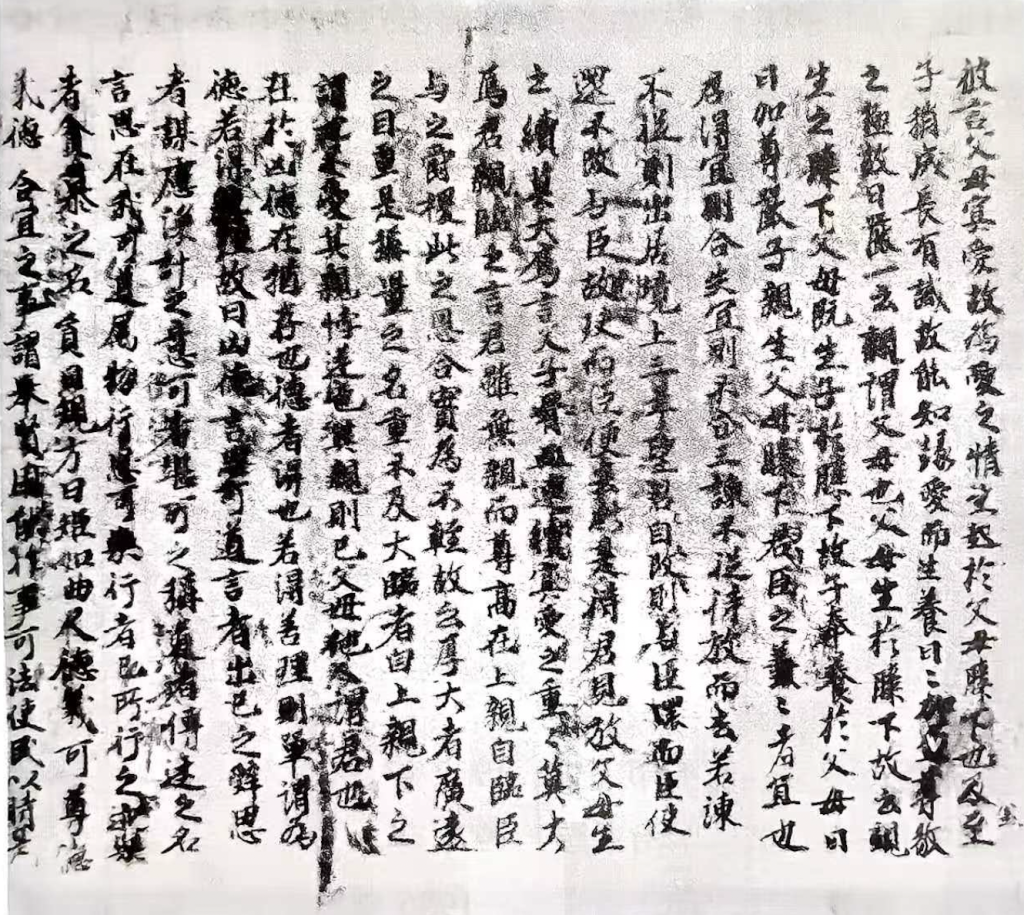 彼言父母寔愛故為愛之情生起於父母膝下也及至
子稍成長有識故能知緣愛而生養日〻加尊敬
之極故曰嚴一云親謂父母也父母生於膝下故云親
生之膝下父母既生子於膝下故子奉養於父母日
日加尊嚴子親生父母膝下君臣之義〻者宜也
君得宜則合失宜則不合三諫不從待放而去若諫
不從則出居境上三年聖君自改則善臣還而臣使
還不改与臣故放而臣便是君見放父母生
之續莫大焉言父子骨血連續寔愛之重〻莫大
焉君親臨之言君雖無親而尊高在上親自臨臣
与之爵禄此之恩合實為不輕故云厚大者廣遠
之目重是猶量之名重不及大臨者自上親下之
謂不愛其親悖逆也其親則己父母他人謂君也
在於凶德在猶存也德者得也若得善理則單謂為
德若得故曰凶德言可道言者出己之辞思
者謀應深計之意可者堪可之稱道者傳述之名
言思在我可道属物行思可樂行者己所行之
者貪暴之名貞目規方曰矩如曲尺德義可尊
義德 合宜之事謂奉賢作事可法使民以時